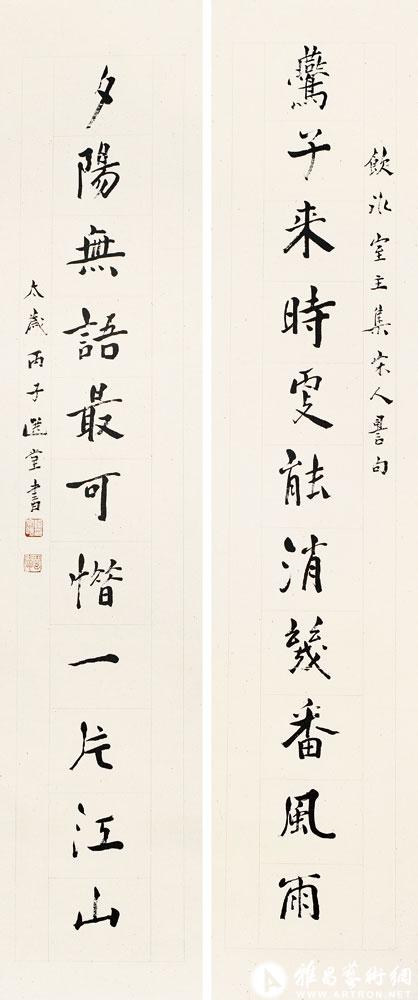 飲冰室主集宋人詞句
鷰子来時更能消幾番風雨
夕陽無語最可惜一片江山
太歲丙子選堂書
雅昌藝術網
WWW.ARTRON.NET